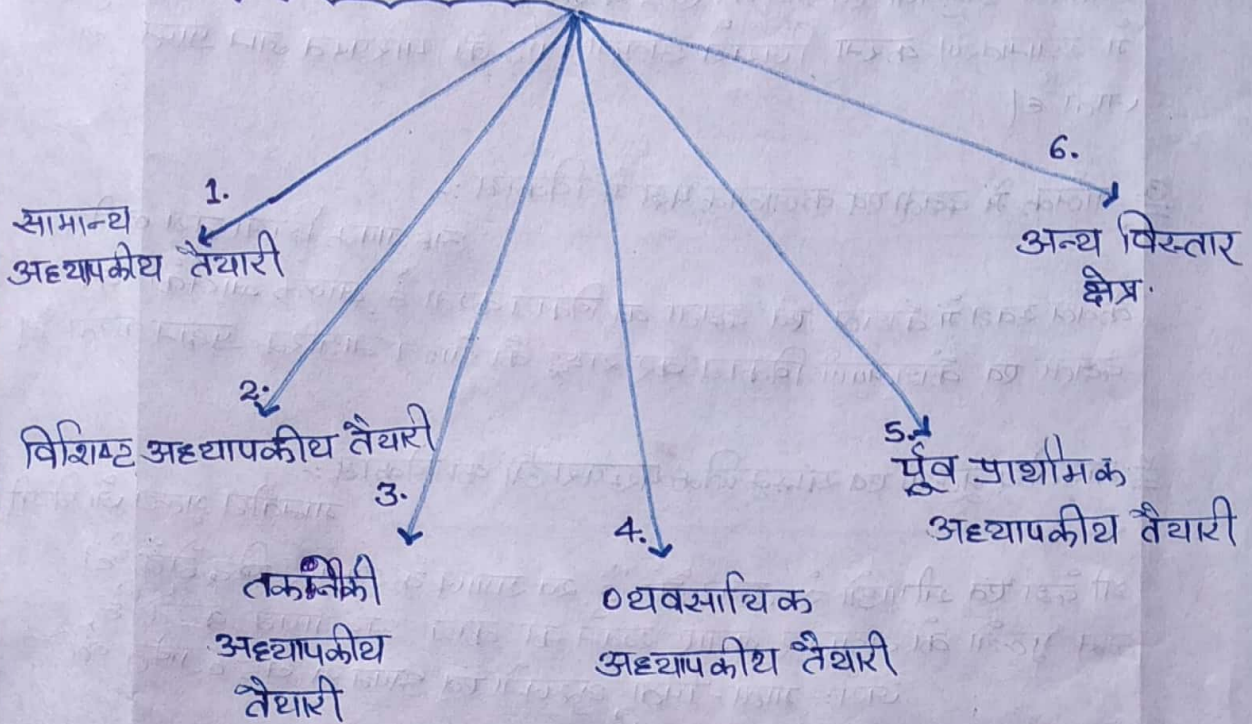 1.
सामान्य
अध्यापकीय तैयारी
2.
विशिष्ट अध्यापकीय तैयारी
3.
तकनीकी
अध्यापकीय
तैयारी
4.
व्यवसायिक
अध्यापकीय तैयारी
5.
पूर्व प्राथमिक
अध्यापकीय तैयारी
6.
अन्य विस्तार
क्षेत्र.